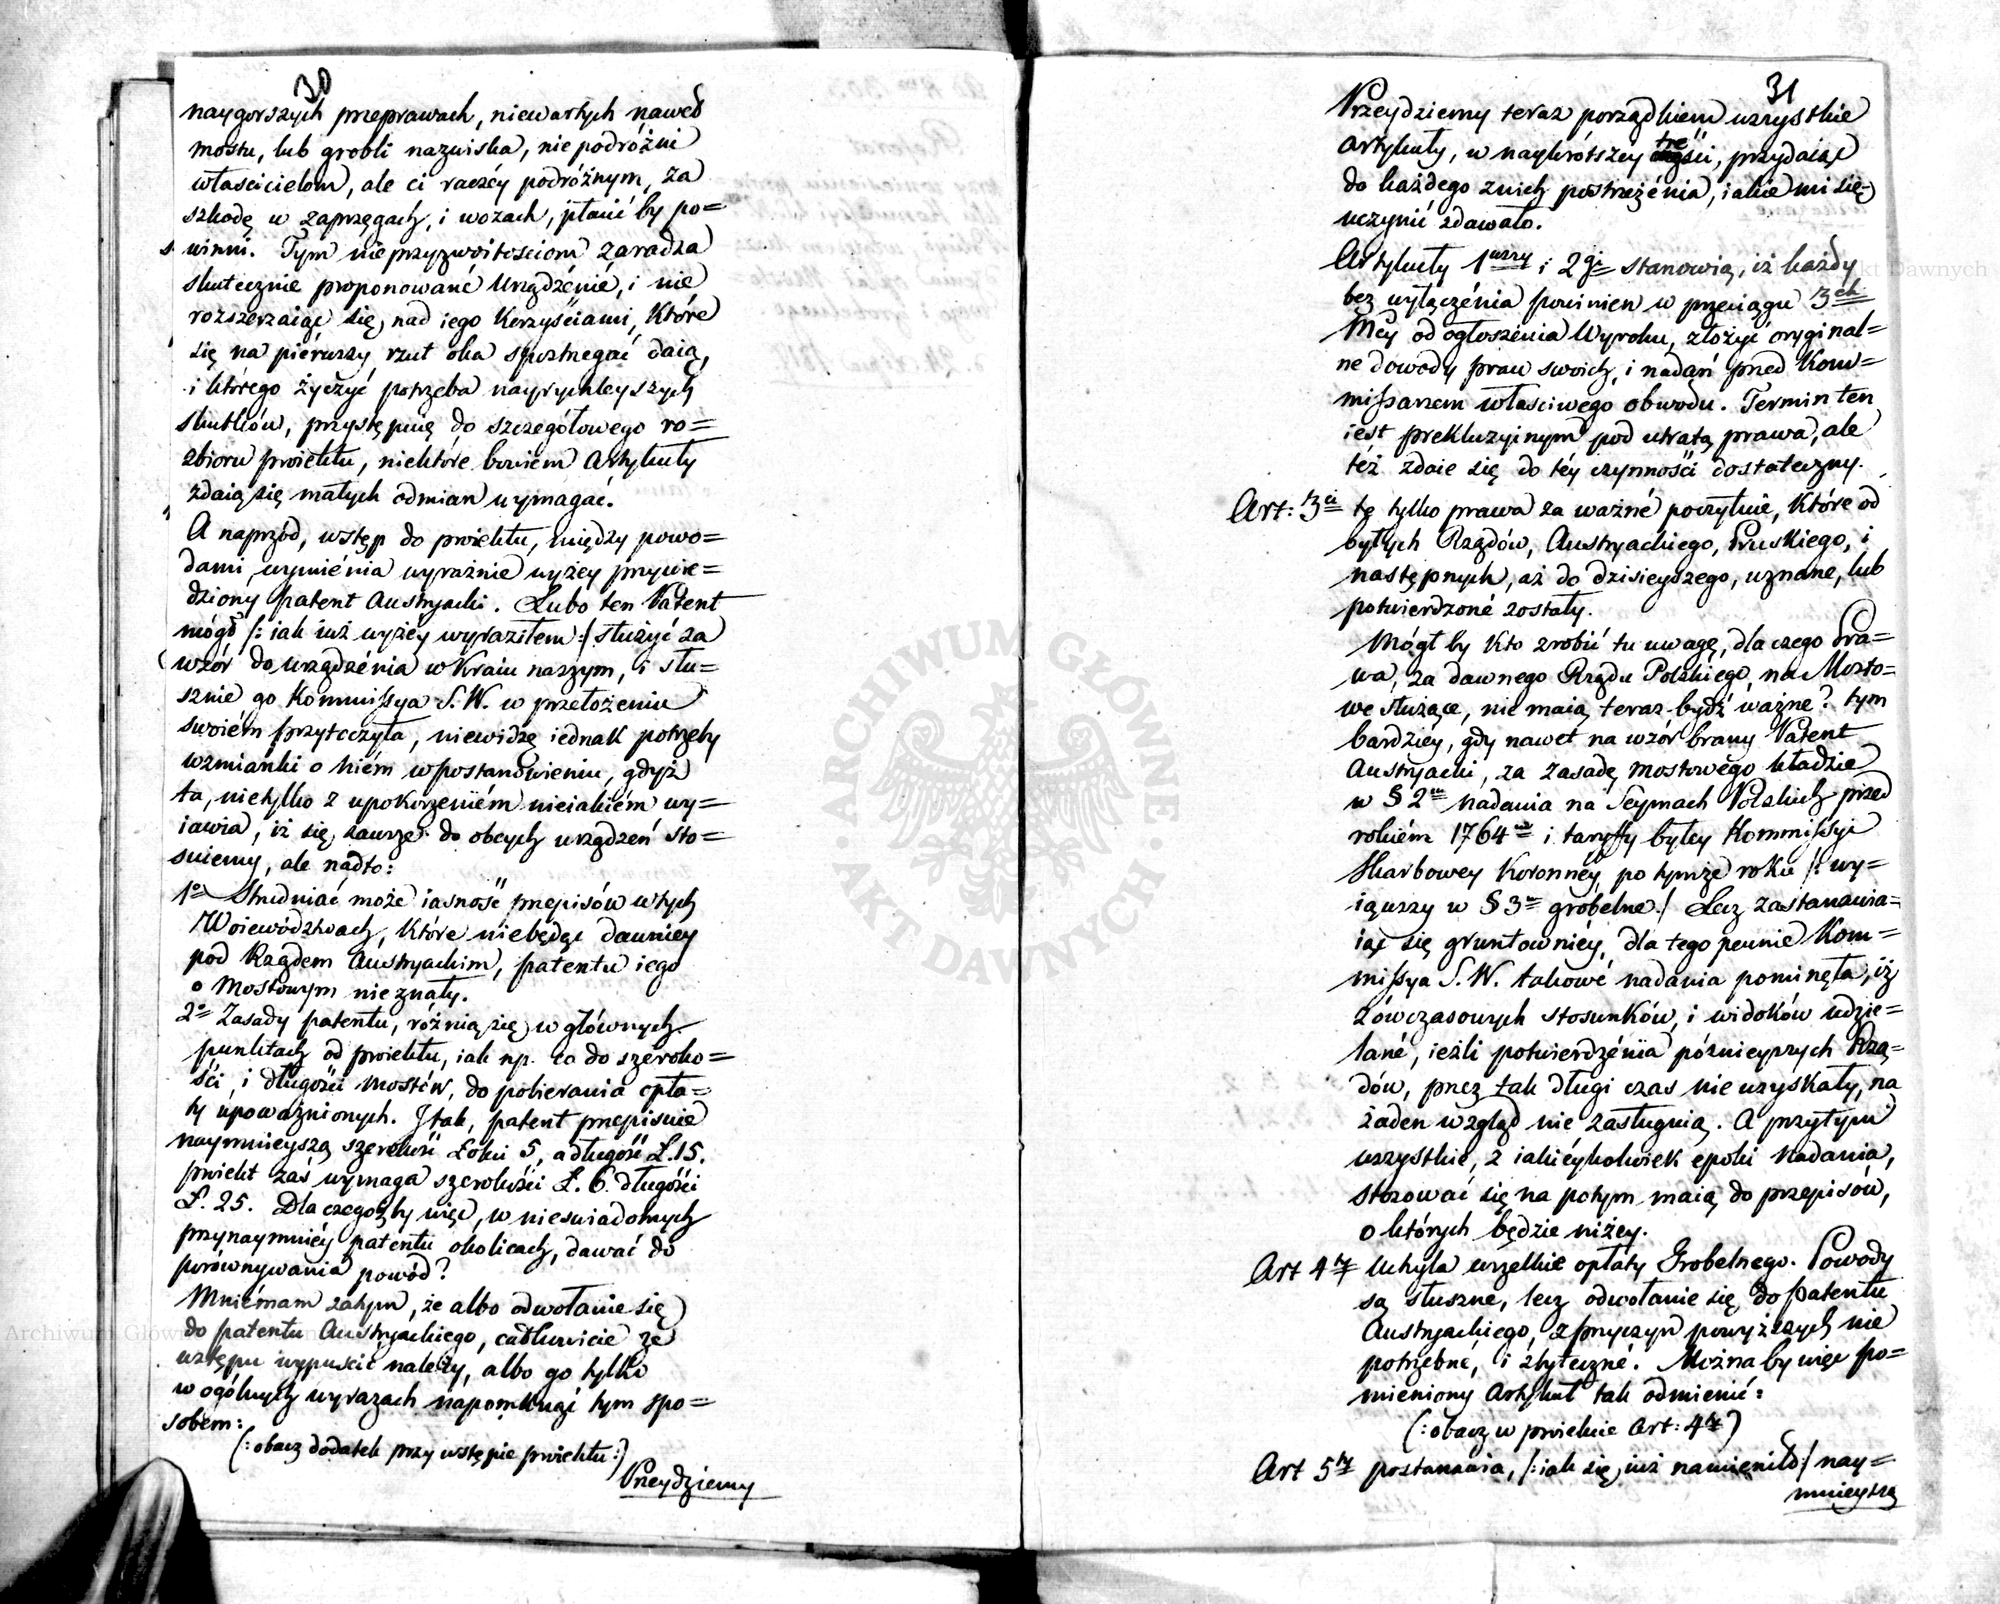 30
naygorszych przeprawach, niewartych nawet
mostu, lub grobli nazwiska, nie podróżni
właścicielom, ale ci raczéy podróżnym, za
szkodę w zaprzęgach, i wozach, płacić by po=
winni. Tym nieprzyzwoitościom zaradza
skutecznie proponowané Urządzénié, i nie
rozszerzaiąc się, nad iego Korzyściami, Które
się na piérwszy rzut oka spostrzegać daią,
i którego życzyć potrzeba nayrychleyszych
skutków, przystępuię do szczegółowego ro=
zbioru proiektu, niektóre bowiém Artykuły
zdaią się małych odmian wymagać.
A naprzód, wstęp do proiektu, między powo=
dami, wymiénia wyraźnie wyżey przywie=
dziony patent Austryacki. Lubo ten Patent
mógł /: iak iuż wyżey wyraziłem :/ służyć za
wzór do urządzénia w Kraiu naszym, i słu=
sznie go Kommissya S. W. w przełożeniu
swoiém przytoczyła, niewidzę iednak potrzeby
wzmianki o niém w postanowieniu, gdyż
ta, nietylko z upokorzeniém nieiakiém wy=
iawia, iż się zawsze do obcych urządzeń sto=
suiemy, ale nadto:
1o Utrudniać może iasność przepisów w tych
Woiewództwach, które niebędąc dawniey
pod Rządem Austryackim, patentu iego
o Mostowym nieznały.
2o Zasady patentu, różnią się w głównych
punktach od proiektu, iak np. co do szeroko=
ści, i długości mostów, do pobierania opła=
ty upoważnionych. I tak, patent przepisuie
naymnieyszą szerokość Łokci 5, a długość Ł. 15.
proiekt zaś wymaga szerokości Ł. 6. długości
Ł. 25. Dla czegożby więc, w nieświadomych
przynaymniéy patentu okolicach, dawać do
porównywania powód?
Mniémam zatym, że albo odwołanie się
do patentu Austryackiego, całkowicie ze
wstępu wypuścić należy, albo go tylko
w ogólnych wyrazach napomknąć tym spo=
sobem:
(: obacz dodatek przy wstępie proiektu :)
Przeydziemy
31
Przeydziemy teraz porządkiem wszystkie
Artykuły, w naykrótszey treści, przydaiąc
do każdego z nich postrzeżénia, iakie mi się
uczynić zdawało.
Artykuły 1wszy i 2gi stanowią, iż każdy
bez wyłączénia powinien w przeciągu 3ch
Mcy od ogłoszénia Wyroku, złożyć oryginal=
ne dowody praw swoich, i nadań przed Kom=
missarzem właściwego obwodu. Termin ten
iest prekluzyinym pod utratą prawa, ale
téż zdaie się do téy czynności dostateczny.
Art: 3ci te tylko prawa za ważné poczytuie, Które od
byłych Rządów, Austryackiego, Pruskiego, i
następnych, aż do dzisieyszego, uznane, lub
potwierdzoné zostały.
Mógł by kto zrobić tu uwagę, dla czego Pra=
wa, za dawnego Rządu Polskiego, na Mosto=
we służące, nie maią teraz bydź ważne? tym
bardziey, gdy nawet na wzór brany Patent
Austryacki, za zasadę mostowégo kładzie
w § 2m nadania na Seymach Polskich przed
rokiém 1764m i taryffy byłey Kommissyi
Skarbowey Koronnéy po tymże roku /: wy=
iąwszy w § 3m grobelne :/ Lecz zastanawia=
iąc się gruntowniéy, dla tego pewnie Kom=
missya S. W. takowé nadania pominęła, iż
z ówczasowych stosunków, i widoków udzie=
lané, ieżli potwierdzénia późnieyszych Rzą=
dów, przez tak długi czas nie uzyskały, na
żaden wzgląd nie zasługuią. A przytym
wszystkie, z iakiéykolwiek epoki nadania,
stosować się na potym maią do przepisów,
o których będzie niżey.
Art 4ty Uchyla wszelkie opłaty Grobelnego. Powody
są słuszne, lecz odwołanie się do patentu
Austryackiego, z przyczyn powyższych nie
potrzebné, i zbyteczné. Można by więc po=
mieniony Artykuł tak odmienić:
(: obacz w proiekcie Art: 4ty)
Art 5ty postanawia, /: iak się iuż namieniło :/ nay=
mnieyszą